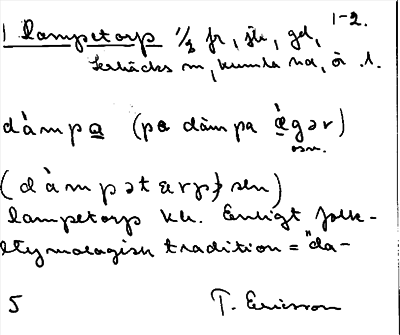 1-2.
1 Lampetorp 1/2 fr, jte, gd,
Lerbäcks sn, Kumla hd, Ö. l.
dàmpa (pa dàmpa ä̀gər)
osn.
(dàmpətarp, sen)
Lampetorp kh. Enligt folk-
etymologisk tradition = "da-
5 T. Ericsson